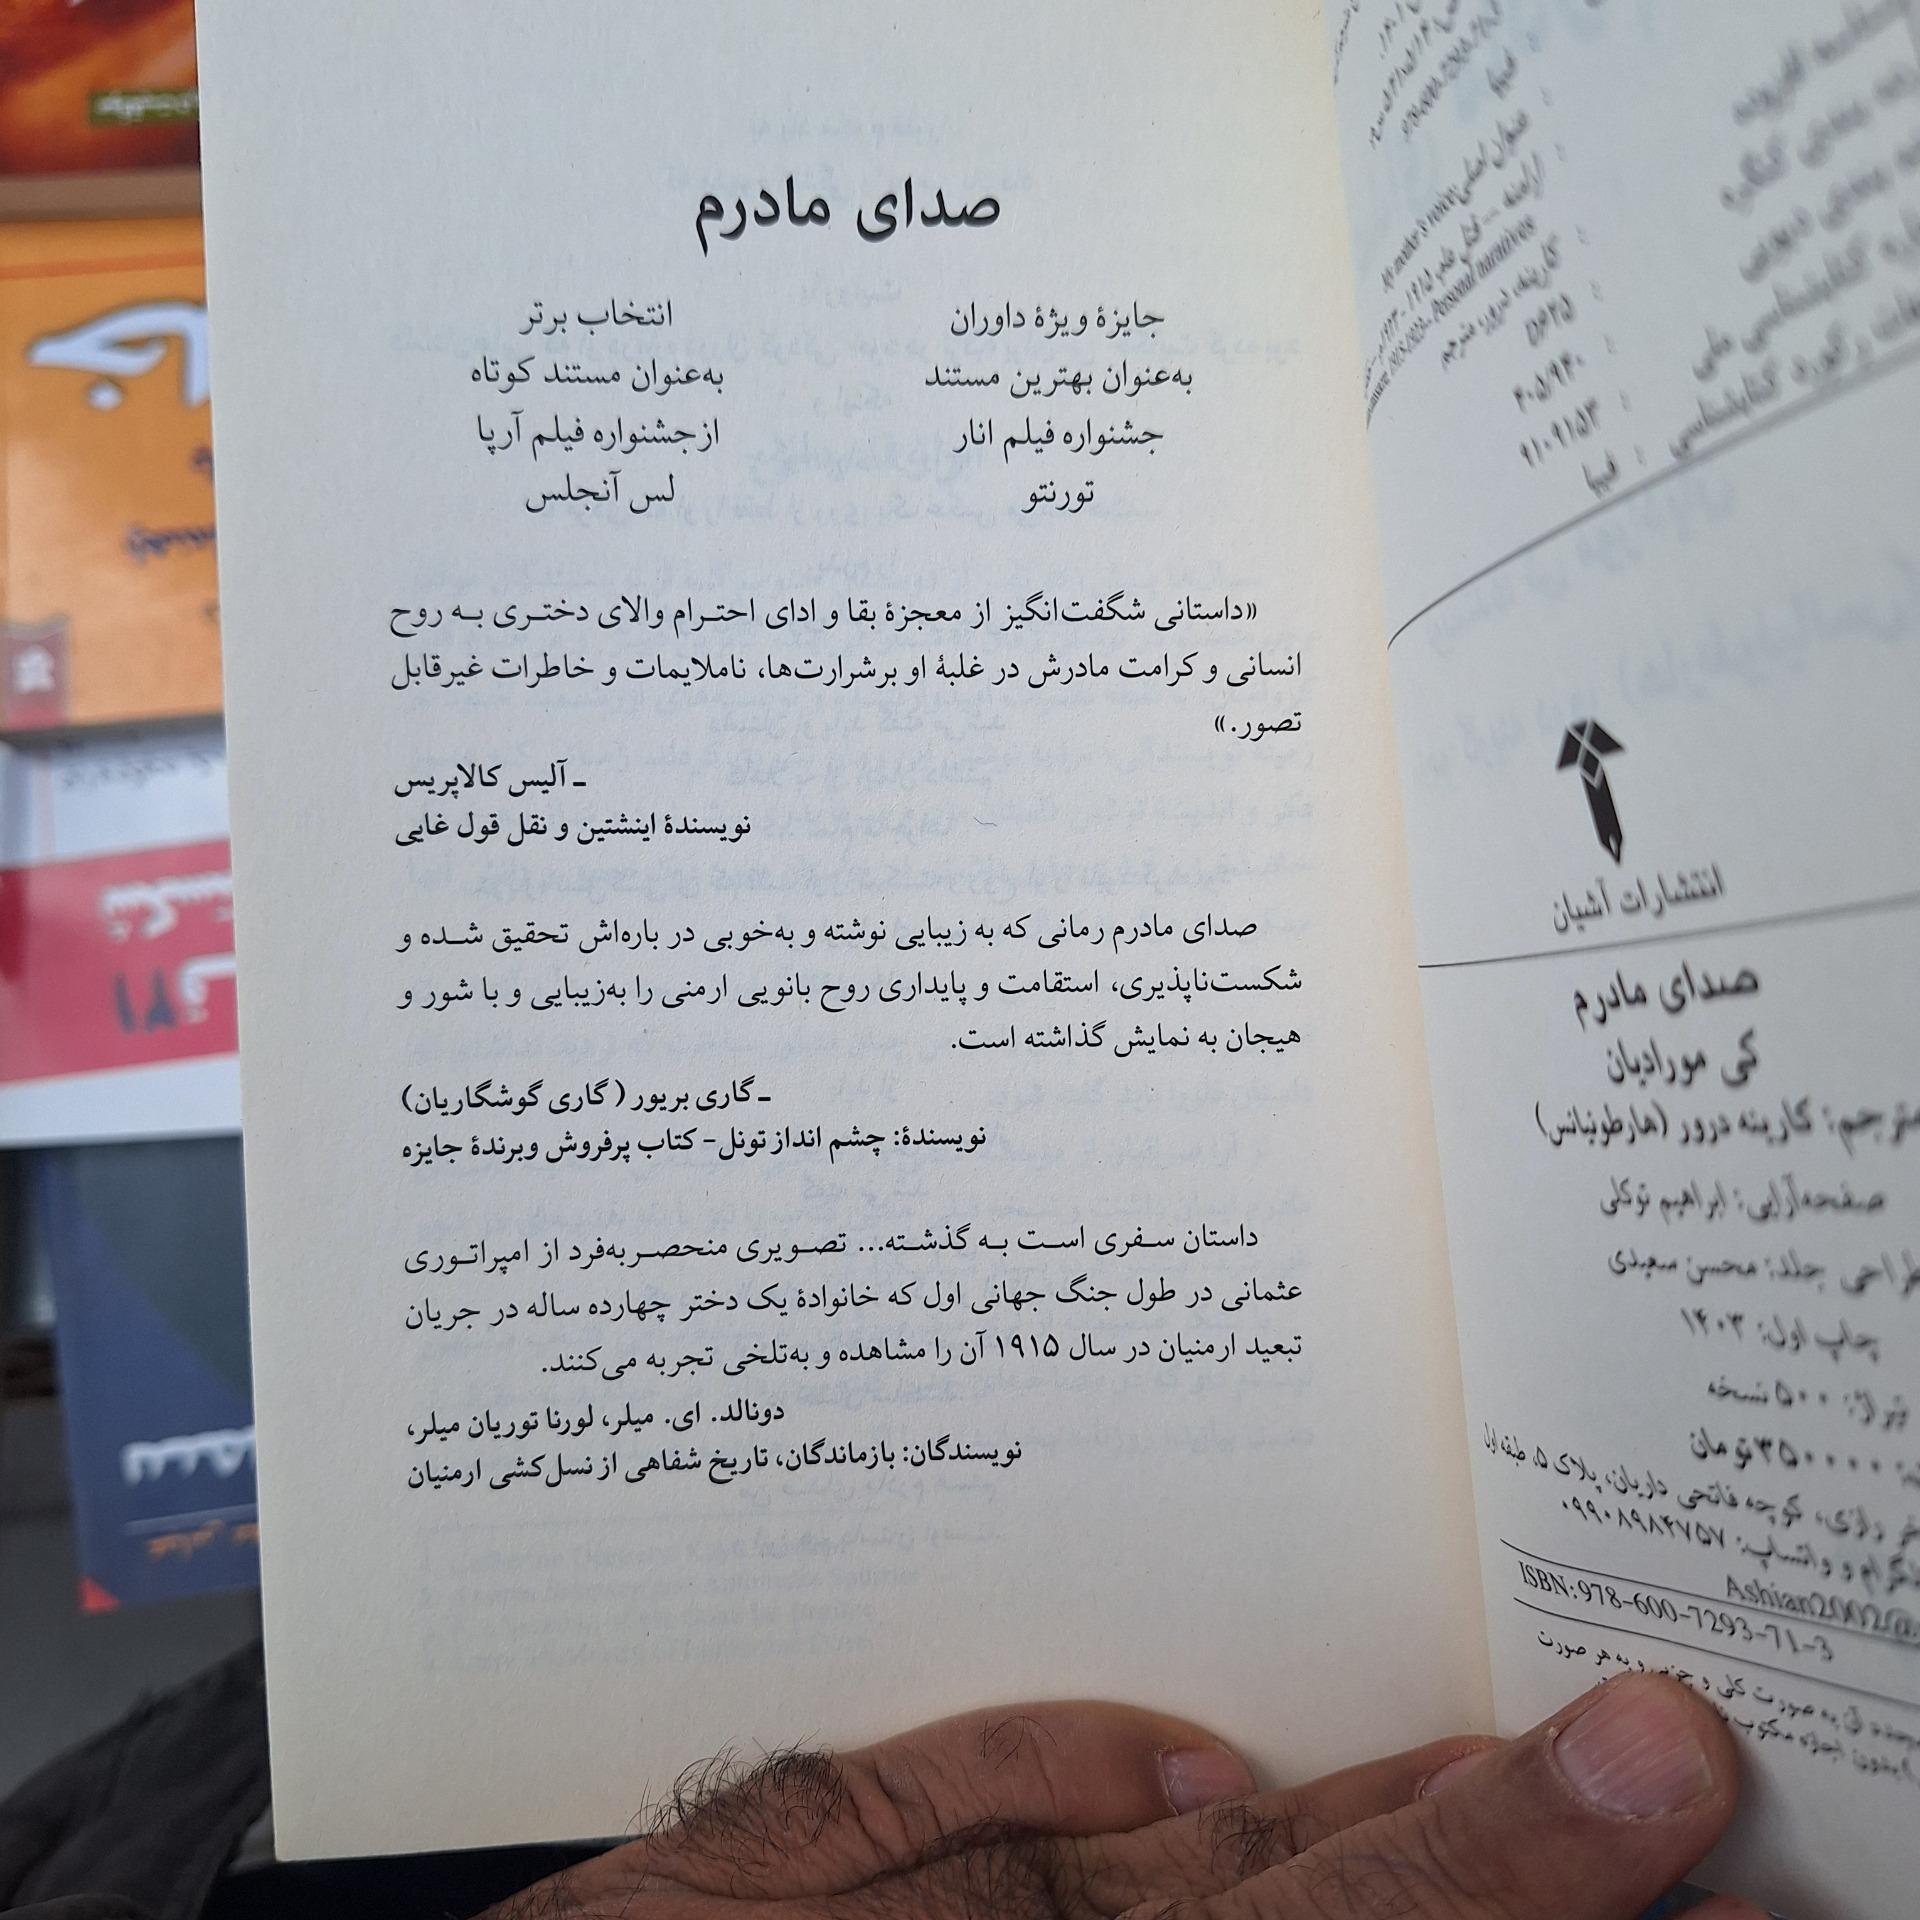 صدای مادرم
جایزهٔ ویژهٔ داوران
به‌عنوان بهترین مستند
جشنواره فیلم انار
تورنتو
انتخاب برتر
به‌عنوان مستند کوتاه
از جشنواره فیلم آرپا
لس آنجلس
«داستانی شگفت‌انگیز از معجزهٔ بقا و ادای احترام والای دختری به روح
انسانی و کرامت مادرش در غلبهٔ او برشرارت‌ها، ناملایمات و خاطرات غیرقابل
تصور.»
ـ آلیس کالاپریس
نویسندهٔ اینشتین و نقل قول غایی
صدای مادرم رمانی که به زیبایی نوشته و به‌خوبی در باره‌اش تحقیق شده و
شکست‌ناپذیری، استقامت و پایداری روح بانویی ارمنی را به‌زیبایی و با شور و
هیجان به نمایش گذاشته است.
ـ گاری بریور ( گاری گوشگاریان)
نویسندهٔ: چشم انداز تونل- کتاب پرفروش وبرندهٔ جایزه
داستان سفری است به گذشته... تصویری منحصربه‌فرد از امپراتوری
عثمانی در طول جنگ جهانی اول که خانوادهٔ یک دختر چهارده ساله در جریان
تبعید ارمنیان در سال ۱۹۱۵ آن را مشاهده و به‌تلخی تجربه می‌کنند.
دونالد. ای. میلر، لورنا توریان میلر،
نویسندگان: بازماندگان، تاریخ شفاهی از نسل‌کشی ارمنیان
عنوان اصلی
Personal narratives
کارینه، درور، مترجم
DS۲۵
۹۱۰۹۱۵۳
کتابشناسی ملی
رکورد کتابشناسی : فیپا
انتشارات آشیان
صدای مادرم
کی مورادیان
مترجم: کارینه درور (هارطونیانس)
صفحه‌آرایی: ابراهیم توکلی
طراحی جلد: محسن سعیدی
چاپ اول: ۱۴۰۳
تیراژ: ۵۰۰ نسخه
۳۵۰۰۰۰ تومان
رازی، کوچه فاتحی داریان، پلاک ۵، طبقه اول
و واتساپ: ۰۹۹۰۸۹۸۴۷۵۷
Ashian2002@
ISBN: 978-600-7293-71-3
به صورت کلی و جزیی و به هر صورت